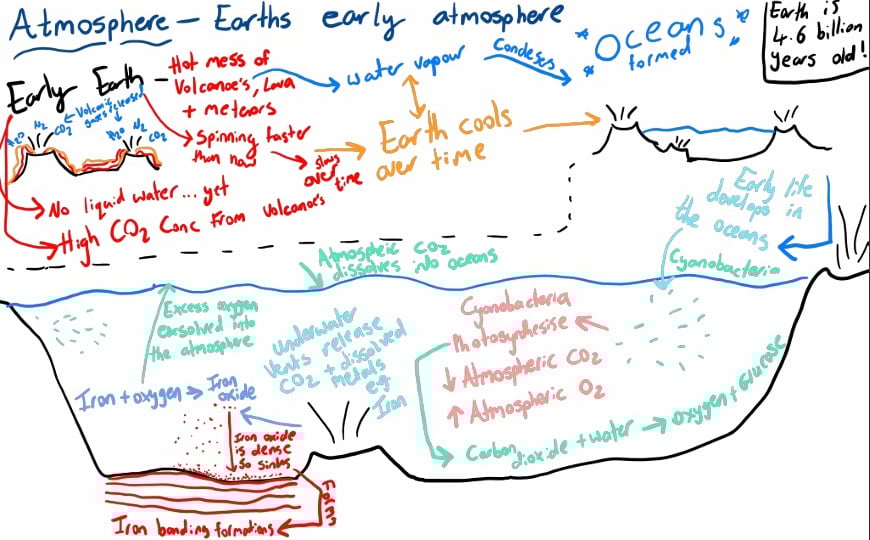 Atmosphere - Earths early atmosphere
Earth is
4.6 billion
years old!
Early Earth -
Hot mess of
Volcanoe's, Lava
+ meteors
Water vapour
Condeses
"Oceans"
formed
H2O N2 CO2
Volcanic
gases released
H2O N2 CO2
Spinning faster
than now
slows
over
time
Earth cools
over time
No liquid water... yet
High CO2 Conc from Volcanoe's
Early life
develops in
the oceans
Cyanobacteria
Atmospheric CO2
dissolves into oceans
Excess oxygen
exsolved into
the atmosphere
Underwater
Vents release
CO2 + dissolved
metals
e.g
Iron
Cyanobacteria
Photosynthesise
↓ Atmospheric CO2
↑ Atmospheric O2
Carbon
dioxide + water → oxygen + Glucose
Iron + oxygen → Iron
oxide
Iron oxide
is dense
so sinks
Forms
Iron banding formations